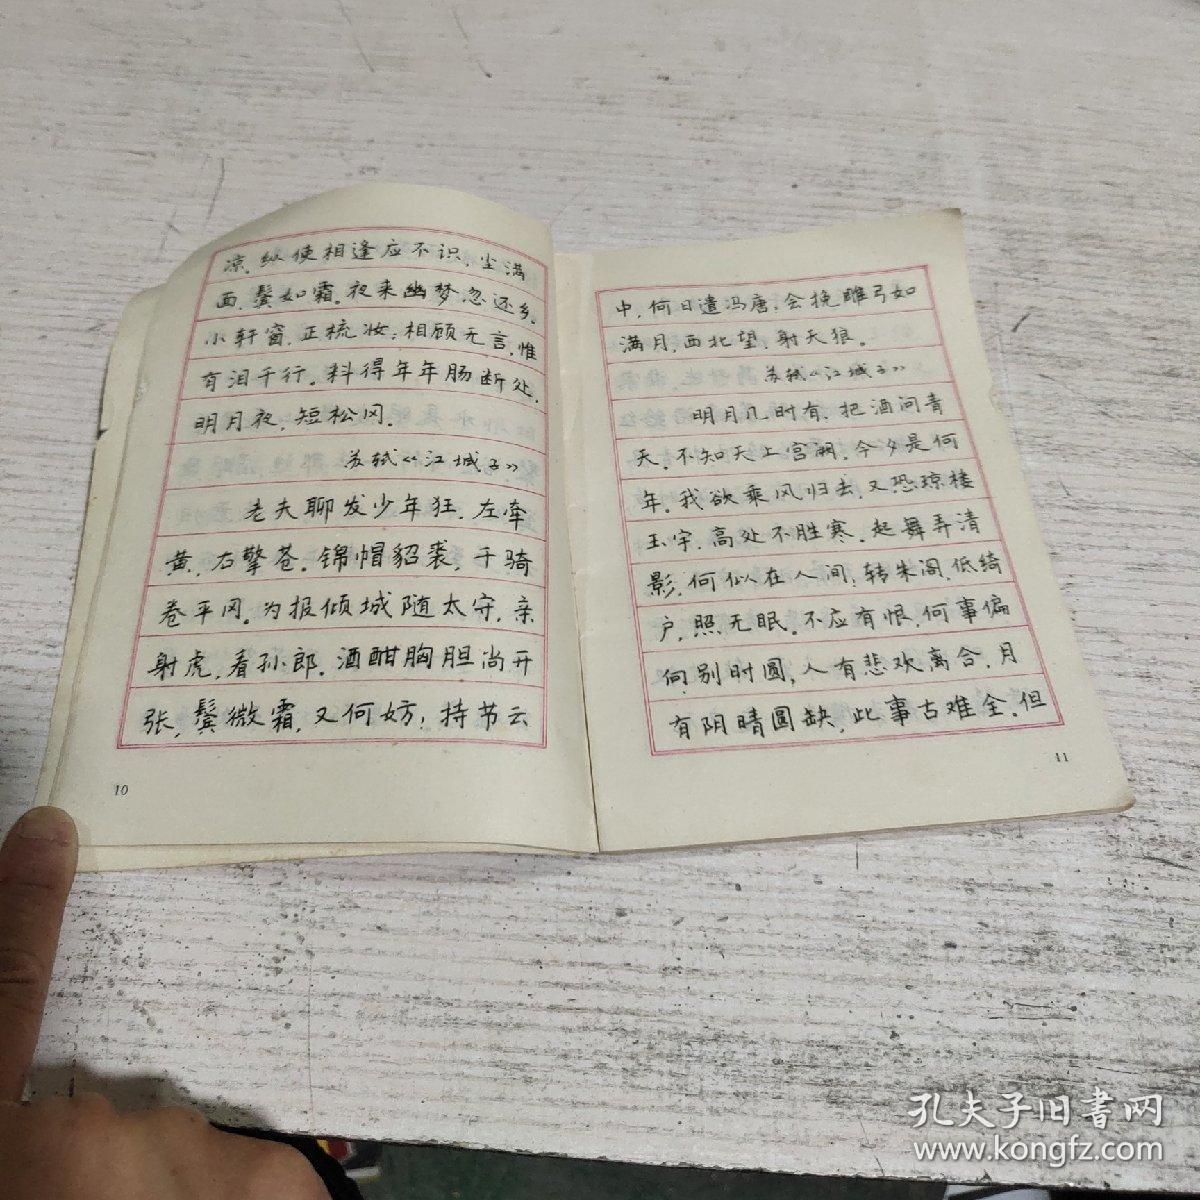 凉，纵使相逢应不识，尘满
面，鬓如霜。夜来幽梦忽还乡。
小轩窗，正梳妆，相顾无言，惟
有泪千行。料得年年肠断处，
明月夜，短松冈。
苏轼《江城子》
老夫聊发少年狂，左牵
黄，右擎苍。锦帽貂裘，千骑
卷平冈。为报倾城随太守，亲
射虎，看孙郎。酒酣胸胆尚开
张，鬓微霜，又何妨！持节云
10
中，何日遣冯唐，会挽雕弓如
满月，西北望，射天狼。
苏轼《江城子》
明月几时有，把酒问青
天，不知天上宫阙，今夕是何
年。我欲乘风归去，又恐琼楼
玉宇，高处不胜寒。起舞弄清
影，何似在人间，转朱阁，低绮
户，照无眠。不应有恨，何事偏
向别时圆，人有悲欢离合，月
有阴晴圆缺，此事古难全，但
11
孔夫子旧书网
www.kongfz.com